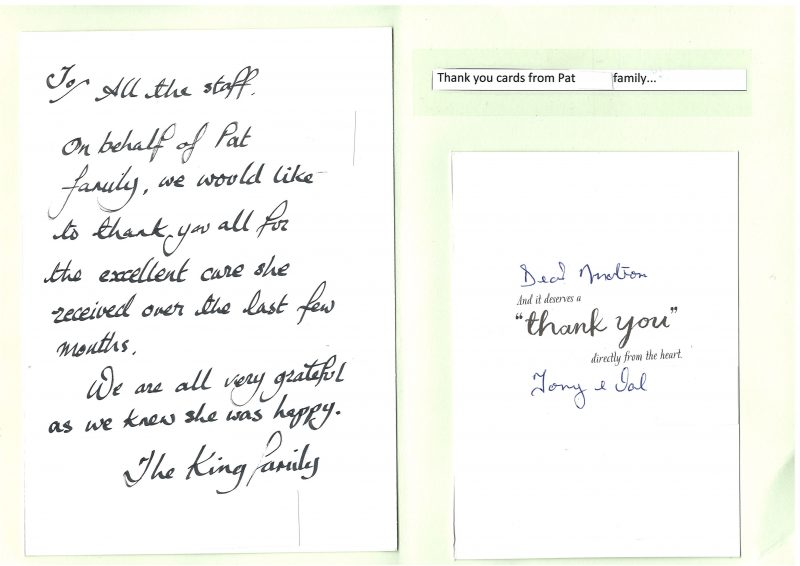 To All the staff.
On behalf of Pat
family, we would like
to thank you all for
the excellent care she
received over the last few
months.
We are all very grateful
as we knew she was happy.
The King family
Thank you cards from Pat family...
Dear Matron
And it deserves a
"thank you"
directly from the heart.
Tony &